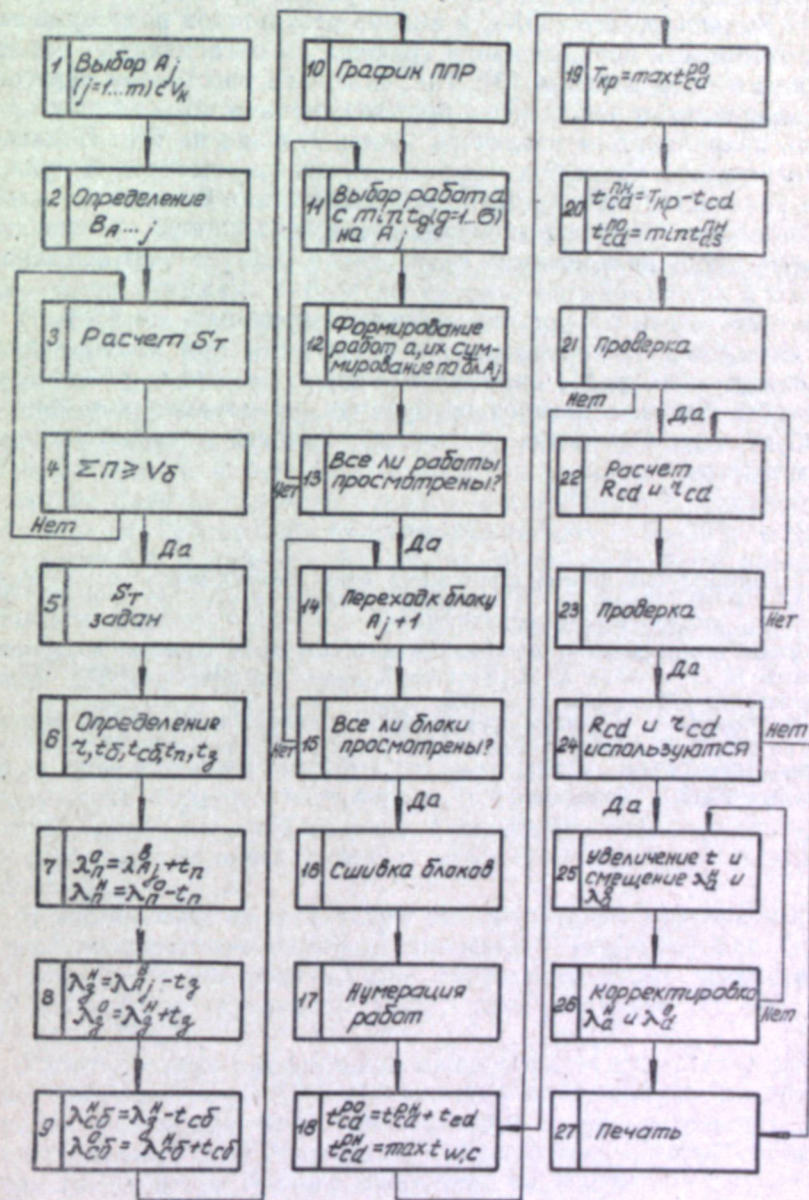 1 Выбор Aj
(j=1...m) ∈ Vк
2 Определение
BA...j
3 Расчет Sт
4 ΣП ≥ Vб
Нет
Да
5 Sт
задан
6 Определение
τ, tб, tсб, tп, tз
7 λпᵒ = λAjᴮ + tп
λпᴴ = λпᵒ - tп
8 λзᴴ = λAjᴴ - tз
λзᵒ = λзᴴ + tз
9 λсбᴴ = λзᴴ - tсб
λсбᵒ = λсбᴴ + tсб
10 График ППР
11 Выбор работ a
с min tg (g=1...G)
на Aj
12 Формирование
работ a, их сум-
мирование по бл Aj
13 Все ли работы
просмотрены?
Нет
Да
14 Переход к блоку
Aj+1
15 Все ли блоки
просмотрены?
Нет
Да
16 Сшивка блоков
17 Нумерация
работ
18 tcdᴾᴼ = tcdᴾᴴ + tcd
tcdᴾᴴ = max tw,c
19 Tкр = max tcdᴾᴼ
20 tcdᴾᴴ = Tкр - tcd
tcdᴾᴼ = min tcsᴾᴴ
21 Проверка
Нет
Да
22 Расчет
Rcd и τcd
23 Проверка
Нет
Да
24 Rcd и τcd
используются
Нет
Да
25 Увеличение t и
смещение λaᴴ и
λбᵒ
26 Корректировка
λaᴴ и λaᵒ
Нет
27 Печать